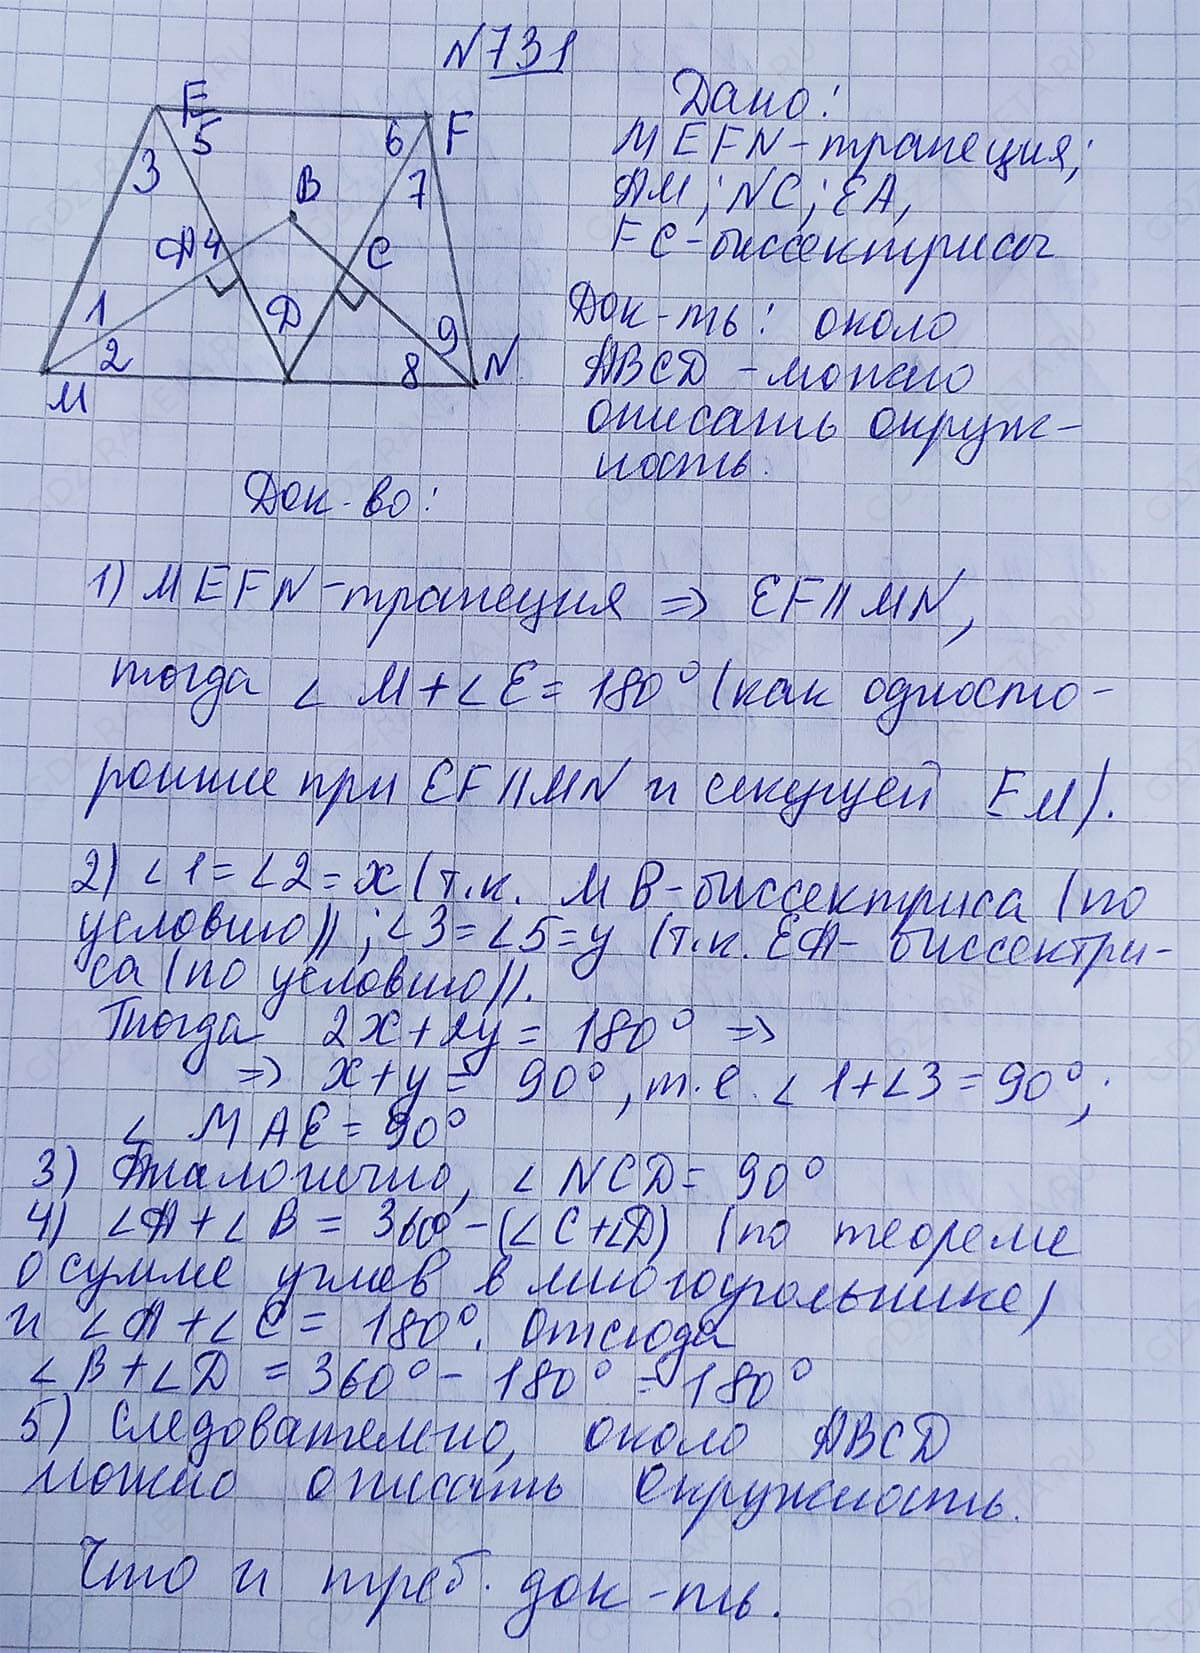 N731
E
5
6
F
3
7
B
A
4
C
1
D
9
2
8
N
M
Дано:
MEFN-трапеция;
AM; NC; EA,
FC-биссектрисы
Док-ть: около
ABCD -можно
описать окруж-
ность.
Док-во:
1) MEFN-трапеция => EF||MN,
тогда ∠M+∠E=180° (как односто-
ронние при EF||MN и секущей EM).
2) ∠1=∠2=x (т.к. MB-биссектриса (по
условию)); ∠3=∠5=y (т.к. EA- биссектри-
са (по условию)).
Тогда 2x+2y=180° =>
=> x+y=90°, т.е. ∠1+∠3=90°;
∠MAE=90°
3) Аналогично, ∠NCD=90°
4) ∠A+∠B=360-(∠C+∠D) (по теореме
о сумме углов в многоугольнике)
и ∠A+∠C=180°. Отсюда
∠B+∠D=360°-180°=180°
5) Следовательно, около ABCD
можно описать окружность.
Что и треб. док-ть.